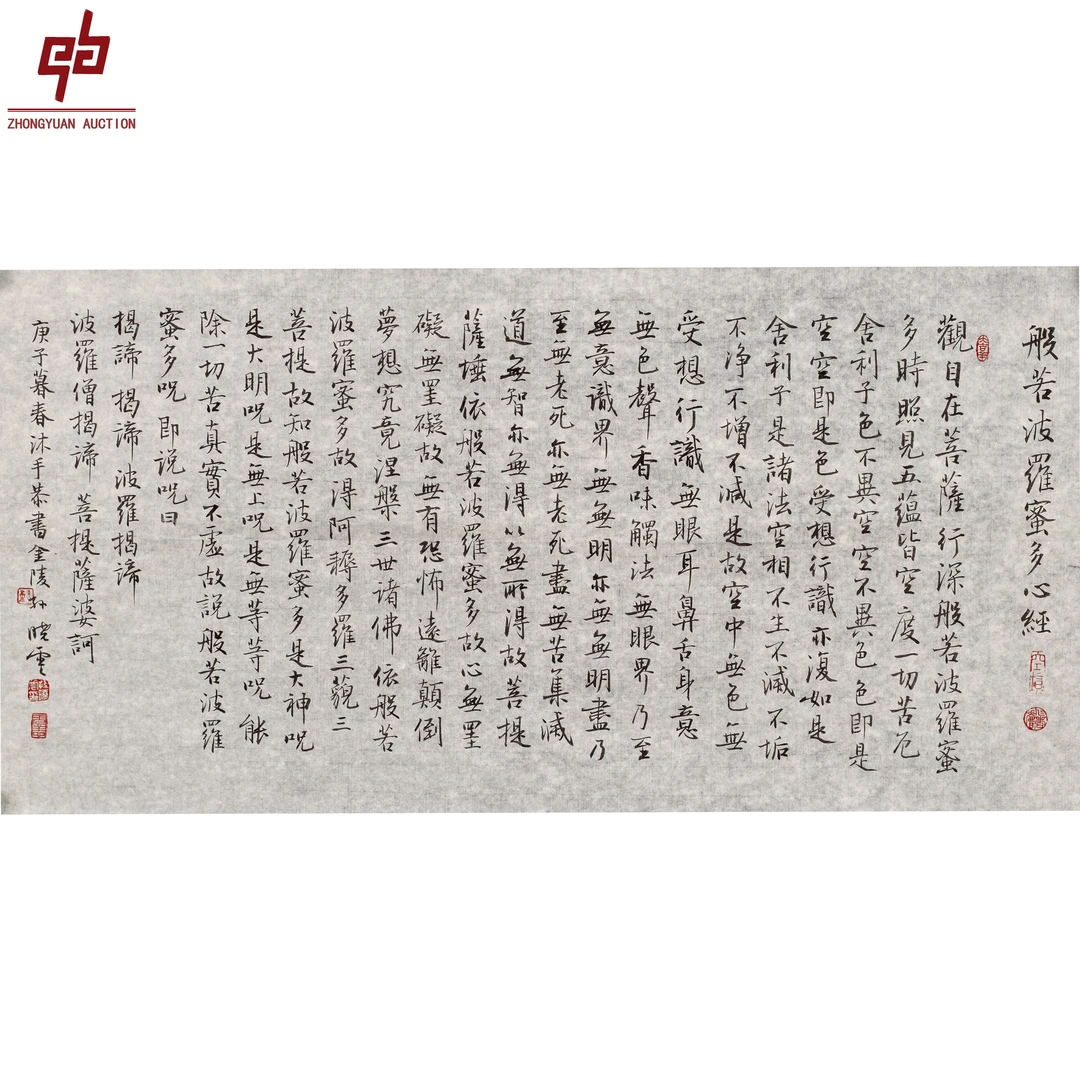 ZHONGYUAN AUCTION
般若波羅蜜多心經
觀自在菩薩行深般若波羅蜜
多時照見五蘊皆空度一切苦厄
舍利子色不異空空不異色色即是
空空即是色受想行識亦復如是
舍利子是諸法空相不生不滅不垢
不淨不增不減是故空中無色無
受想行識無眼耳鼻舌身意
無色聲香味觸法無眼界乃至
無意識界無無明亦無無明盡乃
至無老死亦無老死盡無苦集滅
道無智亦無得以無所得故菩提
薩埵依般若波羅蜜多故心無罣
礙無罣礙故無有恐怖遠離顛倒
夢想究竟涅槃三世诸佛依般若
波羅蜜多故得阿耨多羅三藐三
菩提故知般若波羅蜜多是大神呪
是大明呪是無上呪是無等等呪能
除一切苦真實不虛故說般若波羅
蜜多呪即说呪曰
揭諦揭諦波羅揭諦
波羅僧揭諦菩提薩婆訶
庚子暮春沐手恭書金陵孙晓雲